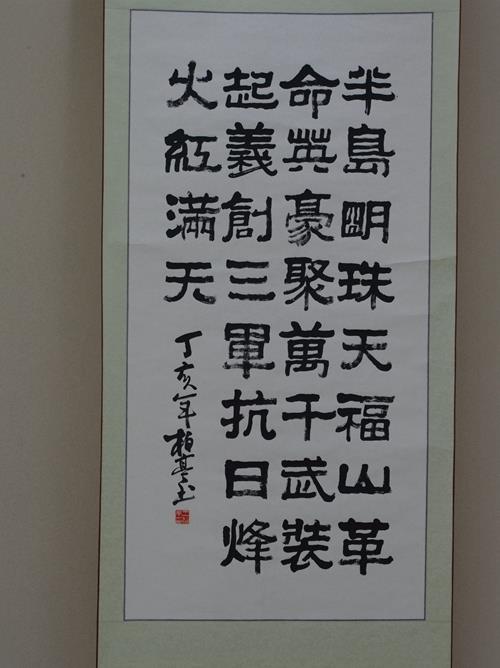 半島明珠天福山革
命英豪聚萬千武裝
起義創三軍抗日烽
火紅滿天
丁亥年柏蓂书